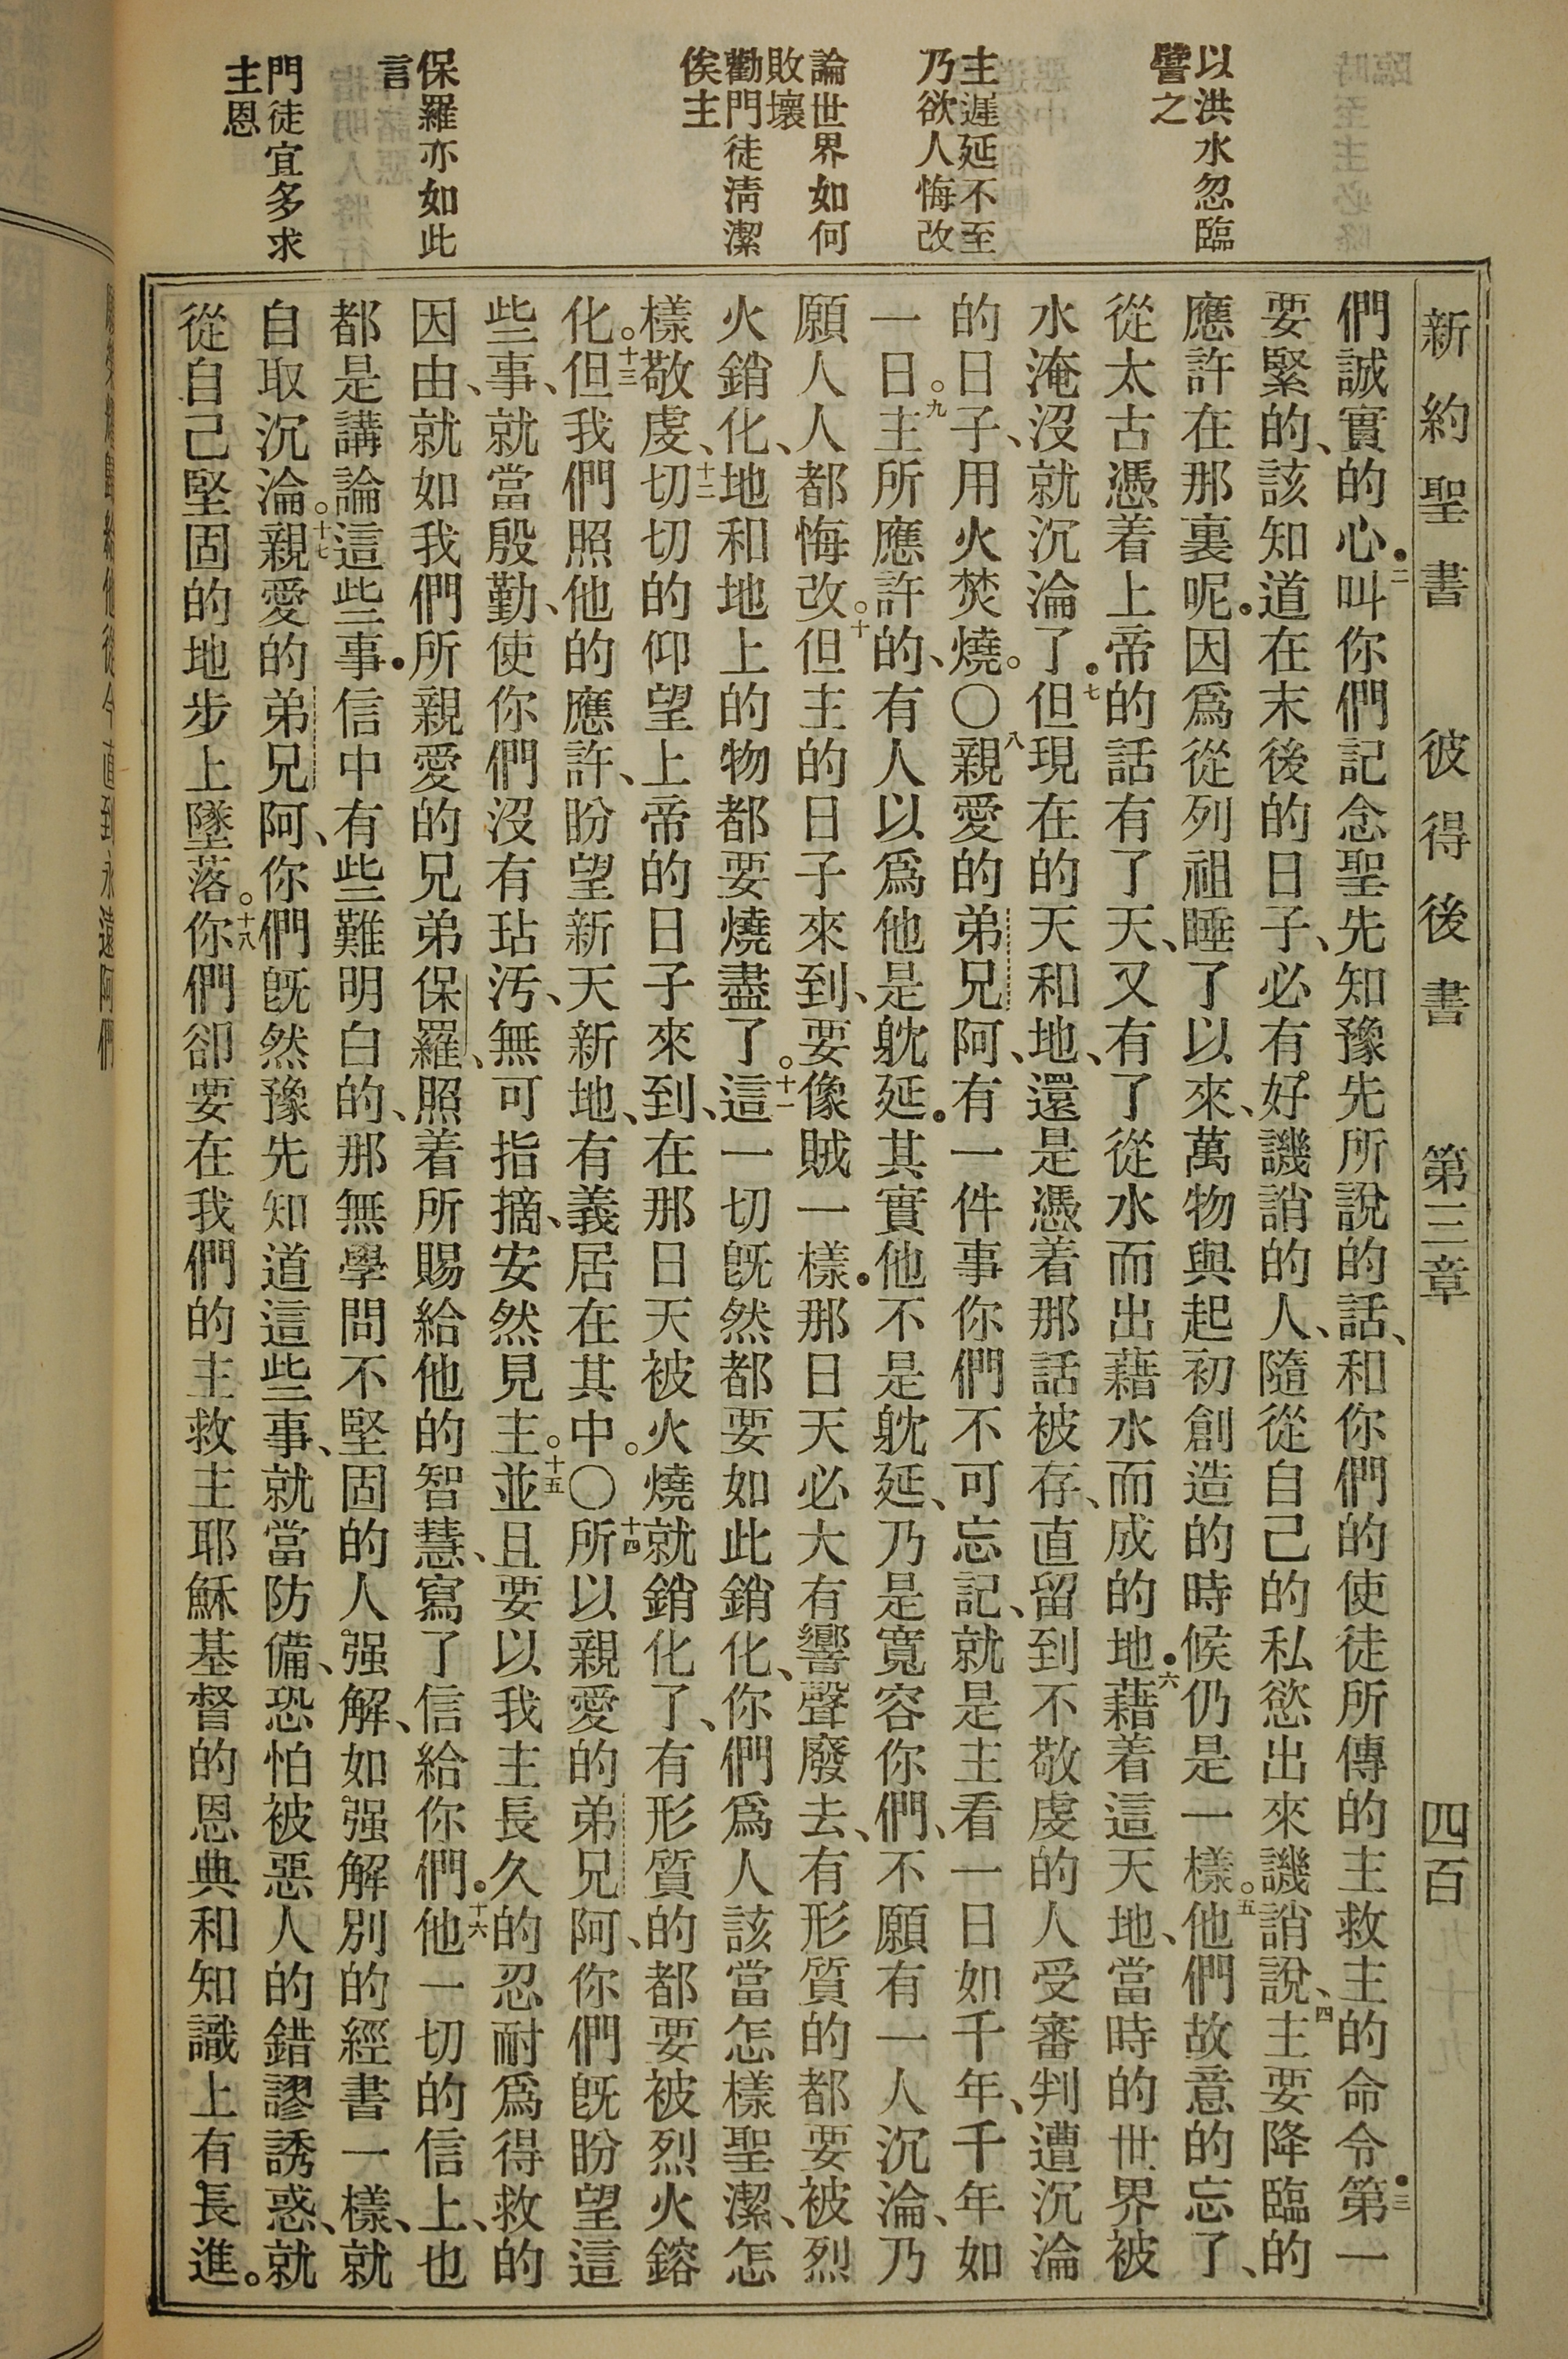 以洪水忽臨
譬之
主遲延不至
乃欲人悔改
論世界如何
敗壞
勸門徒淸潔
俟主
保羅亦如此
言
門徒宜多求
主恩
新約聖書 彼得後書 第三章 四百
們誠實的心●二叫你們記念聖先知豫先所說的話、和你們的使徒所傳的主救主的命令●三第一
要緊的、該知道在末後的日子、必有好譏誚的人、隨從自己的私慾出來譏誚說、四主要降臨的
應許在那裏呢●因爲從列祖睡了以來、萬物與起初創造的時候仍是一樣。五他們故意的忘了、
從太古憑着上帝的話有了天、又有了從水而出藉水而成的地●六藉着這天地、當時的世界被
水淹沒就沉淪了●七但現在的天和地、還是憑着那話被存、直留到不敬虔的人受審判遭沉淪
的日子、用火焚燒。〇八親愛的弟兄阿、有一件事你們不可忘記、就是主看一日如千年、千年如
一日。九主所應許的、有人以爲他是躭延●其實他不是躭延、乃是寬容你們、不願有一人沉淪、乃
願人人都悔改。十但主的日子來到、要像賊一樣●那日天必大有響聲廢去、有形質的都要被烈
火銷化、地和地上的物都要燒盡了。十一這一切旣然都要如此銷化、你們爲人該當怎樣聖潔、怎
樣敬虔、十二切切的仰望上帝的日子來到、在那日天被火燒就銷化了、有形質的都要被烈火鎔
化。十三但我們照他的應許、盼望新天新地、有義居在其中。〇十四所以親愛的弟兄阿、你們旣盼望這
些事、就當殷勤、使你們沒有玷汚、無可指摘、安然見主。十五並且要以我主長久的忍耐爲得救的
因由、就如我們所親愛的兄弟保羅、照着所賜給他的智慧、寫了信給你們●十六他一切的信上、也
都是講論這些事●信中有些難明白的、那無學問不堅固的人强解、如强解別的經書一樣、就
自取沉淪。十七親愛的弟兄阿、你們旣然豫先知道這些事、就當防備、恐怕被惡人的錯謬誘惑、就
從自己堅固的地步上墜落。十八你們卻要在我們的主救主耶穌基督的恩典和知識上有長進。
給他從今直到永遠阿們